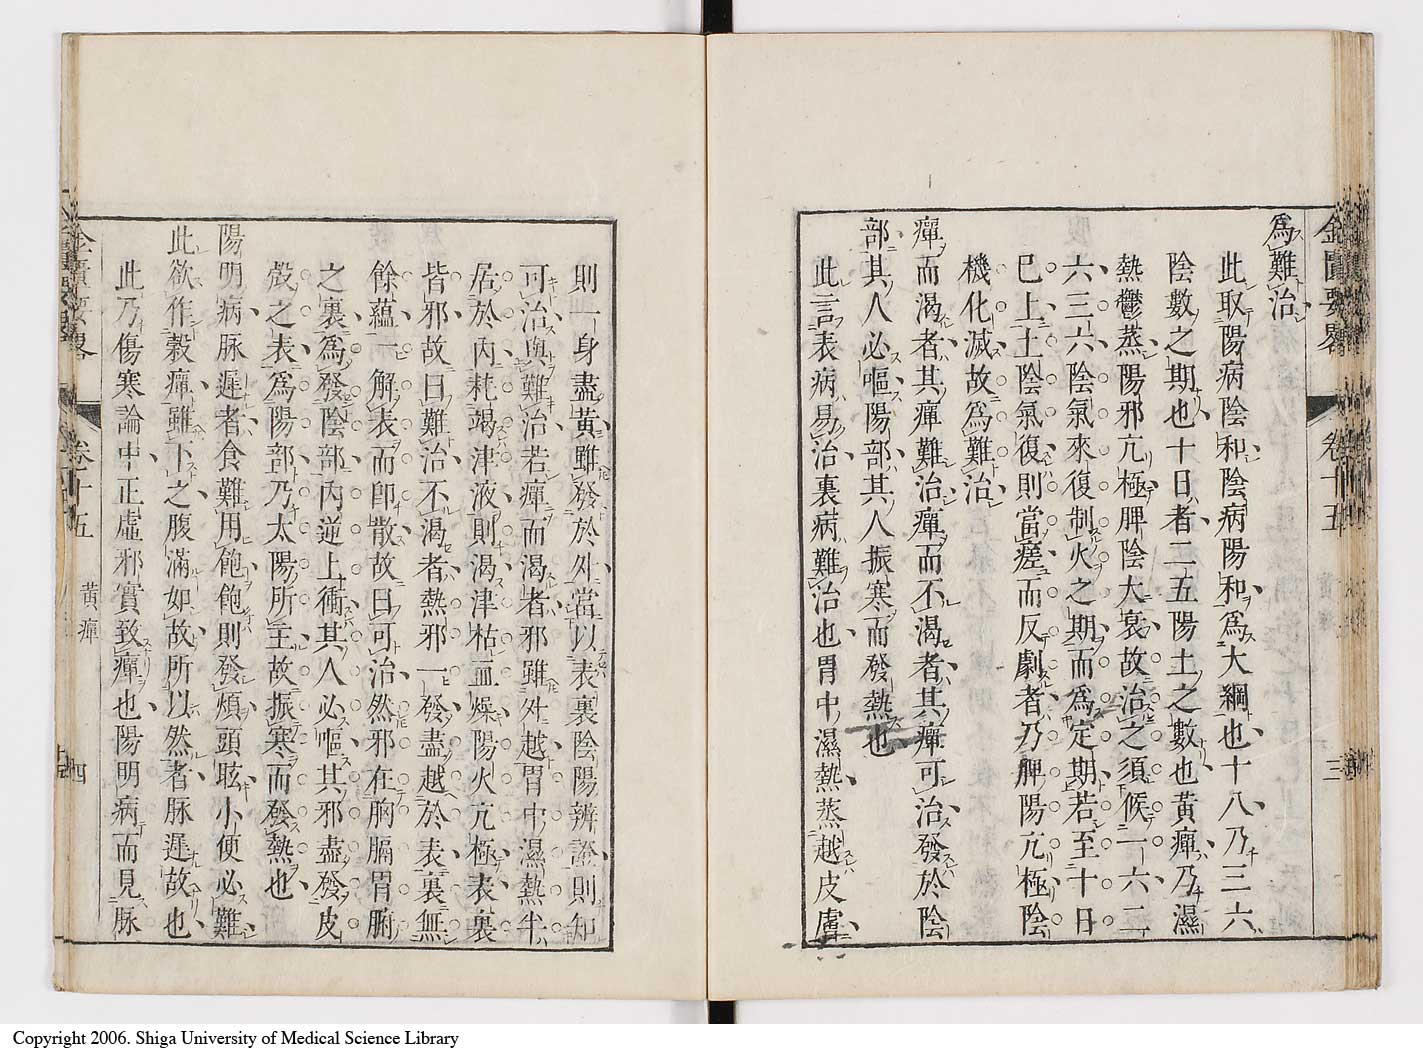 金匱要畧 卷十五 三
爲難治
此取陽病陰和陰病陽和爲大綱也十八乃三六
陰數之期也十日者二五陽土之數也黃癉乃濕
熱鬱蒸陽邪亢極脾陰大衰故治之須候一六二
六三六陰氣來復制火之期而爲定期若至十日
已上土陰氣復則當瘥而反劇者乃脾陽亢極陰
機化滅故爲難治
癉而渴者其癉難治癉而不渴者其癉可治發於陰
部其人必嘔陽部其人振寒而發熱也
此言表病易治裏病難治也胃中濕熱蒸越皮膚
則一身盡黃雖發於外當以表裏陰陽辨證則知
可治與難治若癉而渴者邪雖外越胃中濕熱半
居於內耗竭津液則渴津枯血燥陽火亢極表裏
皆邪故曰難治不渴者熱邪一發盡越於表裏無
餘蘊一解表而卽散故曰可治然邪在胸膈胃腑
之裏爲發陰部內逆上衝其人必嘔其邪盡發皮
殼之表爲陽部乃太陽所主故振寒而發熱也
陽明病脉遲者食難用飽飽則發煩頭眩小便必難
此欲作穀癉雖下之腹滿如故所以然者脉遲故也
此乃傷寒論中正虛邪實致癉也陽明病而見脉
金匱要畧 卷十五 黃癉 四
Copyright 2006. Shiga University of Medical Science Library